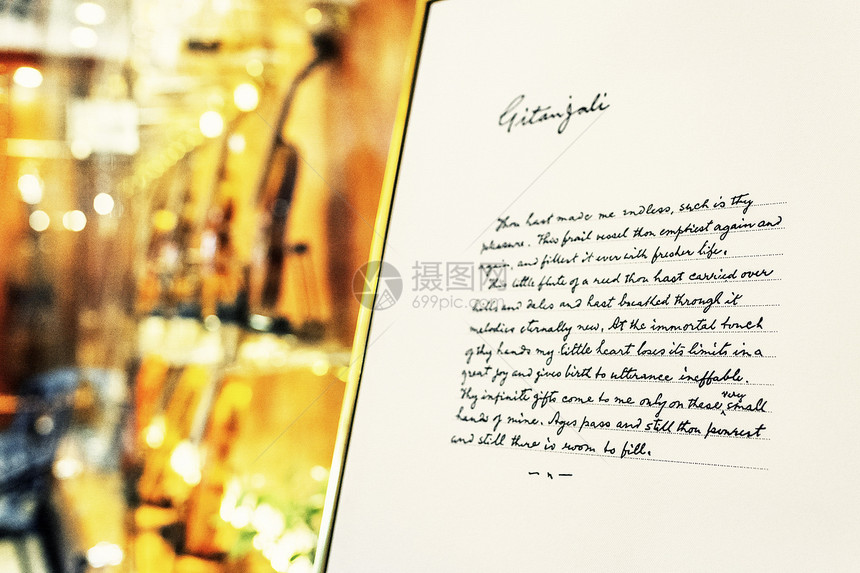 Gitanjali
Thou hast made me endless, such is thy
pleasure. This frail vessel thou emptiest again and
again, and fillest it ever with fresher life.
This little flute of a reed thou hast carried over
hills and dales and hast breathed through it
melodies eternally new. At the immortal touch
of thy hands my little heart loses its limits in a
great joy and gives birth to utterance ineffable.
Thy infinite gifts come to me only on these very small
hands of mine. Ages pass and still thou pourest
and still there is room to fill.
摄图网
699pic.com